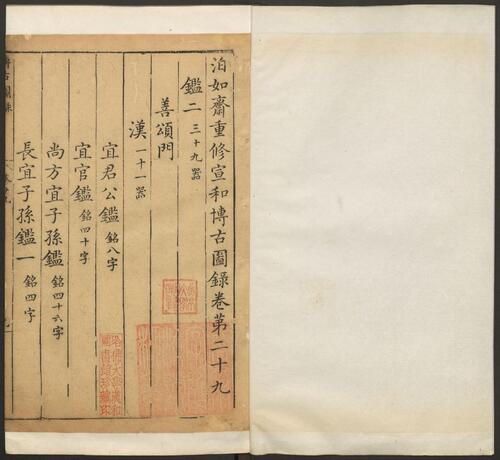 泊如齋重修宣和博古圖錄卷第二十九
鑑二 三十九器
善頌門
漢 一十一器
宜君公鑑 銘八字
宜官鑑 銘四十字
尚方宜子孫鑑 銘四十六字
長宜子孫鑑一 銘四字
哈佛大學漢和圖書館珍藏印